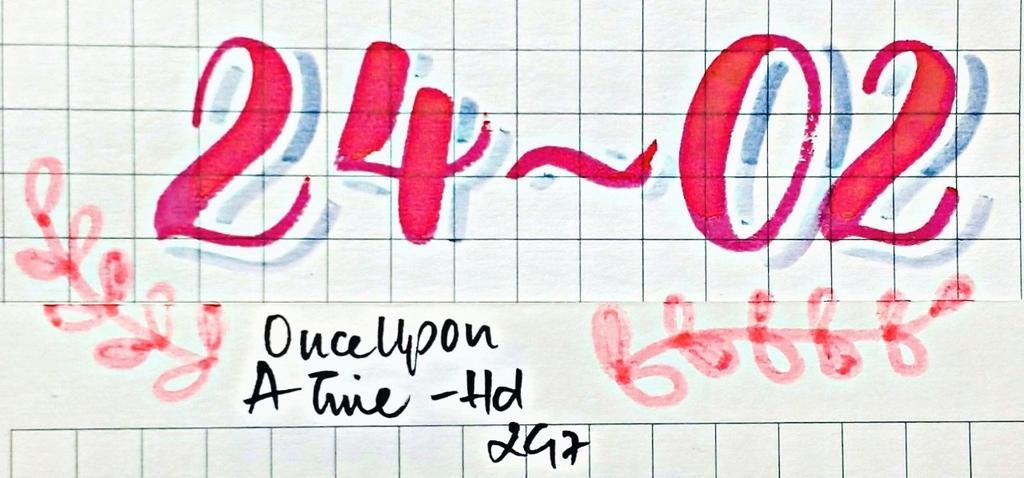 24~02
OnceUpon
A Time -Hd
297